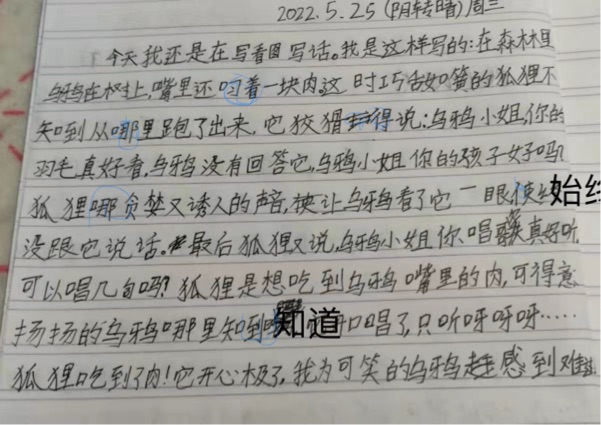 2022.5.25(阴转晴)周三
今天我还是在写看图写话。我是这样写的:在森林里
乌鸦在树上,嘴里还叼着一块肉,这时巧舌如簧的狐狸不
知到从哪里跑了出来,它狡猾得说:乌鸦小姐,你的
羽毛真好看,乌鸦没有回答它,乌鸦小姐你的孩子好吗
狐狸哪贪婪又诱人的声音,让乌鸦看了它一眼,始终
没跟它说话。最后狐狸又说,乌鸦小姐你唱歌真好听
可以唱几句吗?狐狸是想吃到乌鸦嘴里的肉,可得意
扬扬的乌鸦哪里知到知道口唱了,只听呀呀呀……
狐狸吃到了肉!它开心极了,我为可笑的乌鸦感到难